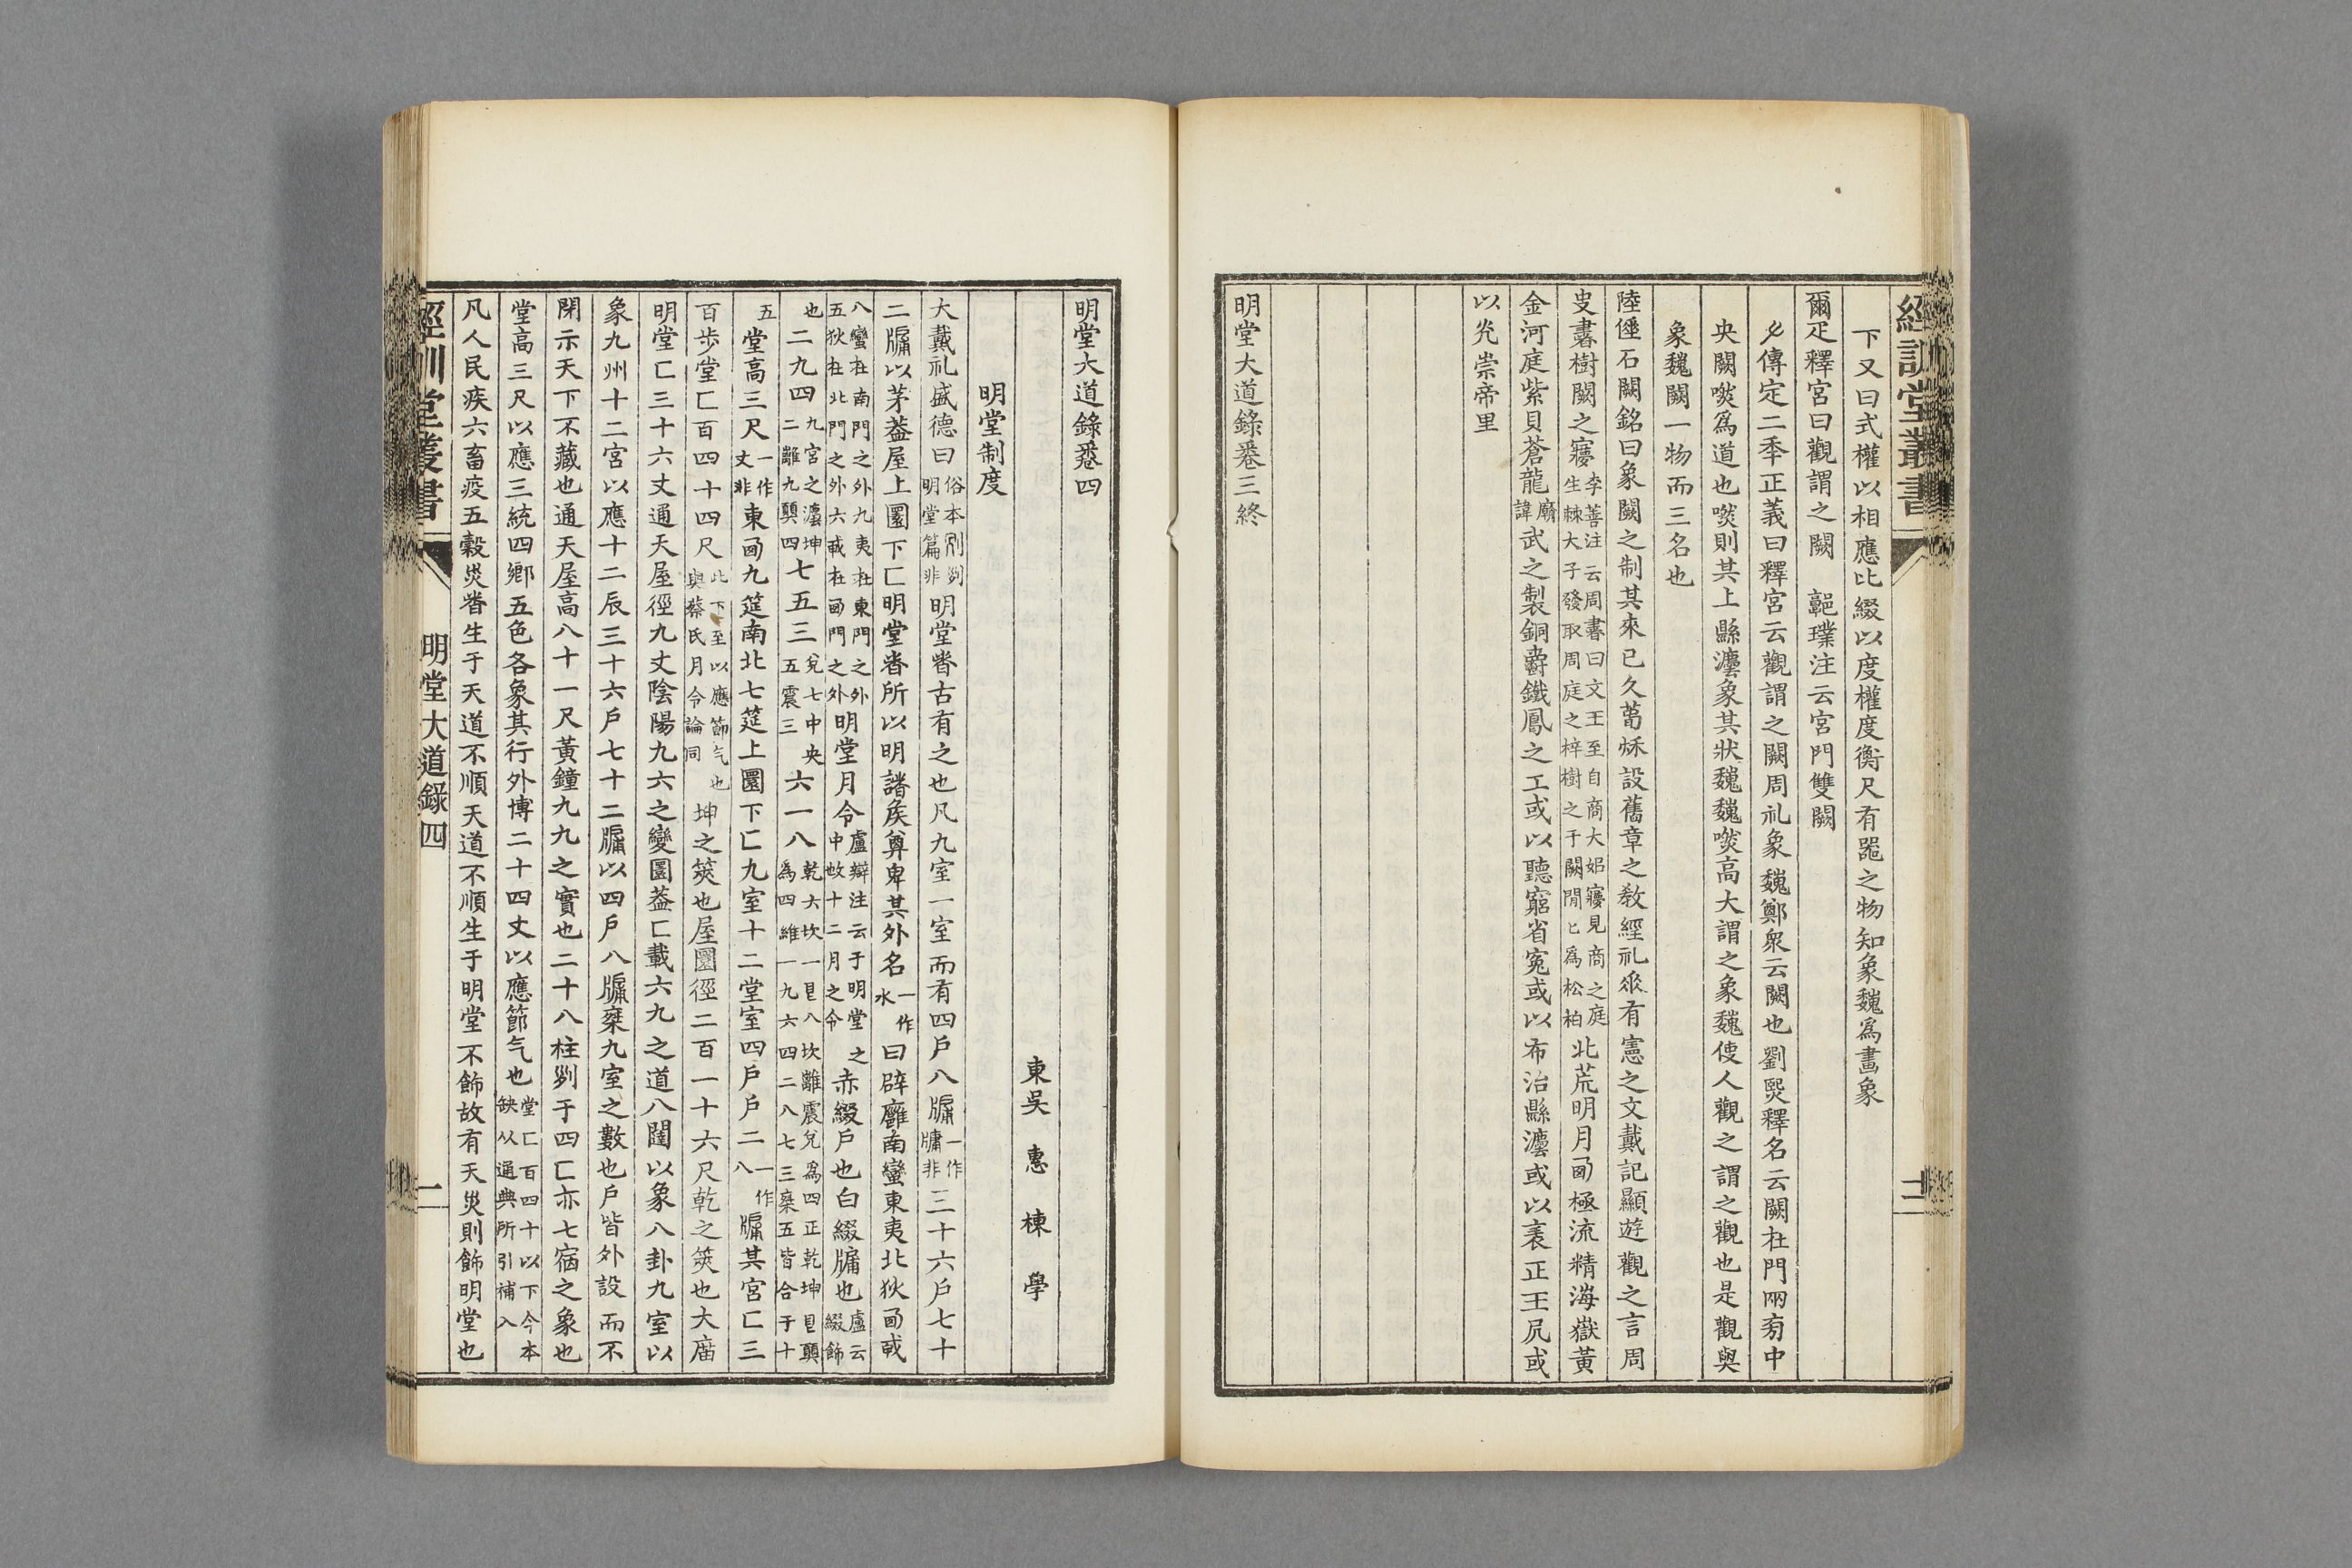 經訓堂叢書
下又曰式權以相應比綴以度權度衡尺有器之物知象魏爲畫象
爾疋釋宮曰觀謂之闕 郭璞注云宮門雙闕
傳定二年正義曰釋宮云觀謂之闕周礼象魏鄭衆云闕也劉熙釋名云闕在門兩旁中
央闕然爲道也然則其上縣灋象其狀魏魏然高大謂之象魏使人觀之謂之觀也是觀與
象魏闕一物而三名也
陸倕石闕銘曰象闕之制其來已久蒍 設舊章之敎經礼 有憲之文戴記顯遊觀之言周
史書樹闕之㝱李善注云周書曰文王至自商大姒㝱見商之庭生棘大子發取周庭之梓樹之于闕閒匕爲松柏北荒明月西極流精海嶽黃
金河庭紫貝蒼龍廟諱武之製銅爵鐵鳳之工或以聽窮省寃或以布治縣灋或以表正王凥或
以光崇帝里
明堂大道錄卷三終
明堂大道錄卷四
東吳 惠 棟 學
明堂制度
大戴礼盛德曰俗本別列明堂篇非明堂者古有之也凡九室一室而有四戶八牖一作牗非三十六戶七十
二牖以茅葢屋上圜下匚明堂者所以明諸矦尊卑其外名一作水曰辟廱南蠻東夷北狄西戎
八蠻在南門之外九夷在東門之外五狄在北門之外六戎在西門之外明堂月令盧辯注云于明堂之中故十二月之令赤綴戶也白綴牖也盧云綴飾
也二九四九宮之灋坤二離九巽四七五三兌七中央五震三六一八乾六坎一艮八坎離震兌爲四正乾坤艮巽爲四維一九六四二八七三桼五皆合于十
五堂高三尺一作丈非東西九筵南北七筵上圜下匚九室十二堂室四戶戶二一作八牖其宮匚三
百步堂匚百四十四尺此下至以應節气也與蔡氏月令論同坤之筴也屋圜徑二百一十六尺乾之筴也大庿
明堂匚三十六丈通天屋徑九丈陰陽九六之變圜葢匚載六九之道八闥以象八卦九室以
象九州十二宮以應十二辰三十六戶七十二牖以四戶八牖椉九室之數也戶皆外設而不
閉示天下不藏也通天屋高八十一尺黃鐘九九之實也二十八柱列于四匚亦七宿之象也
堂高三尺以應三統四鄕五色各象其行外博二十四丈以應節气也堂匚百四十以下今本缺从通典所引補入
凡人民疾六畜疫五穀災者生于天道不順天道不順生于明堂不飾故有天災則飾明堂也
經訓堂叢書 明堂大道錄四 一